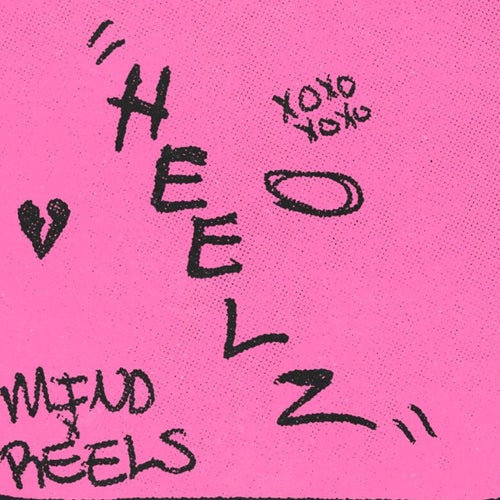 "HEELZ"
XOXO
XOXO
MIND
X
REELS